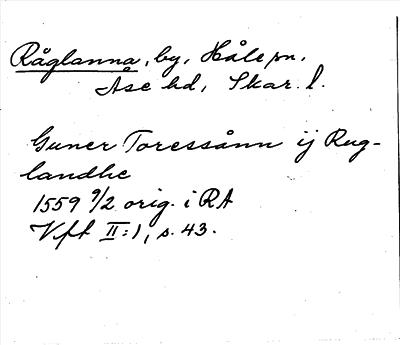 Råglanna, by, Håle sn.
Åse hd, Skar. l.
Guner Toressånn ij Rug-
landhe
1559 9/2 orig. i RA
Vft II:1, s. 43.